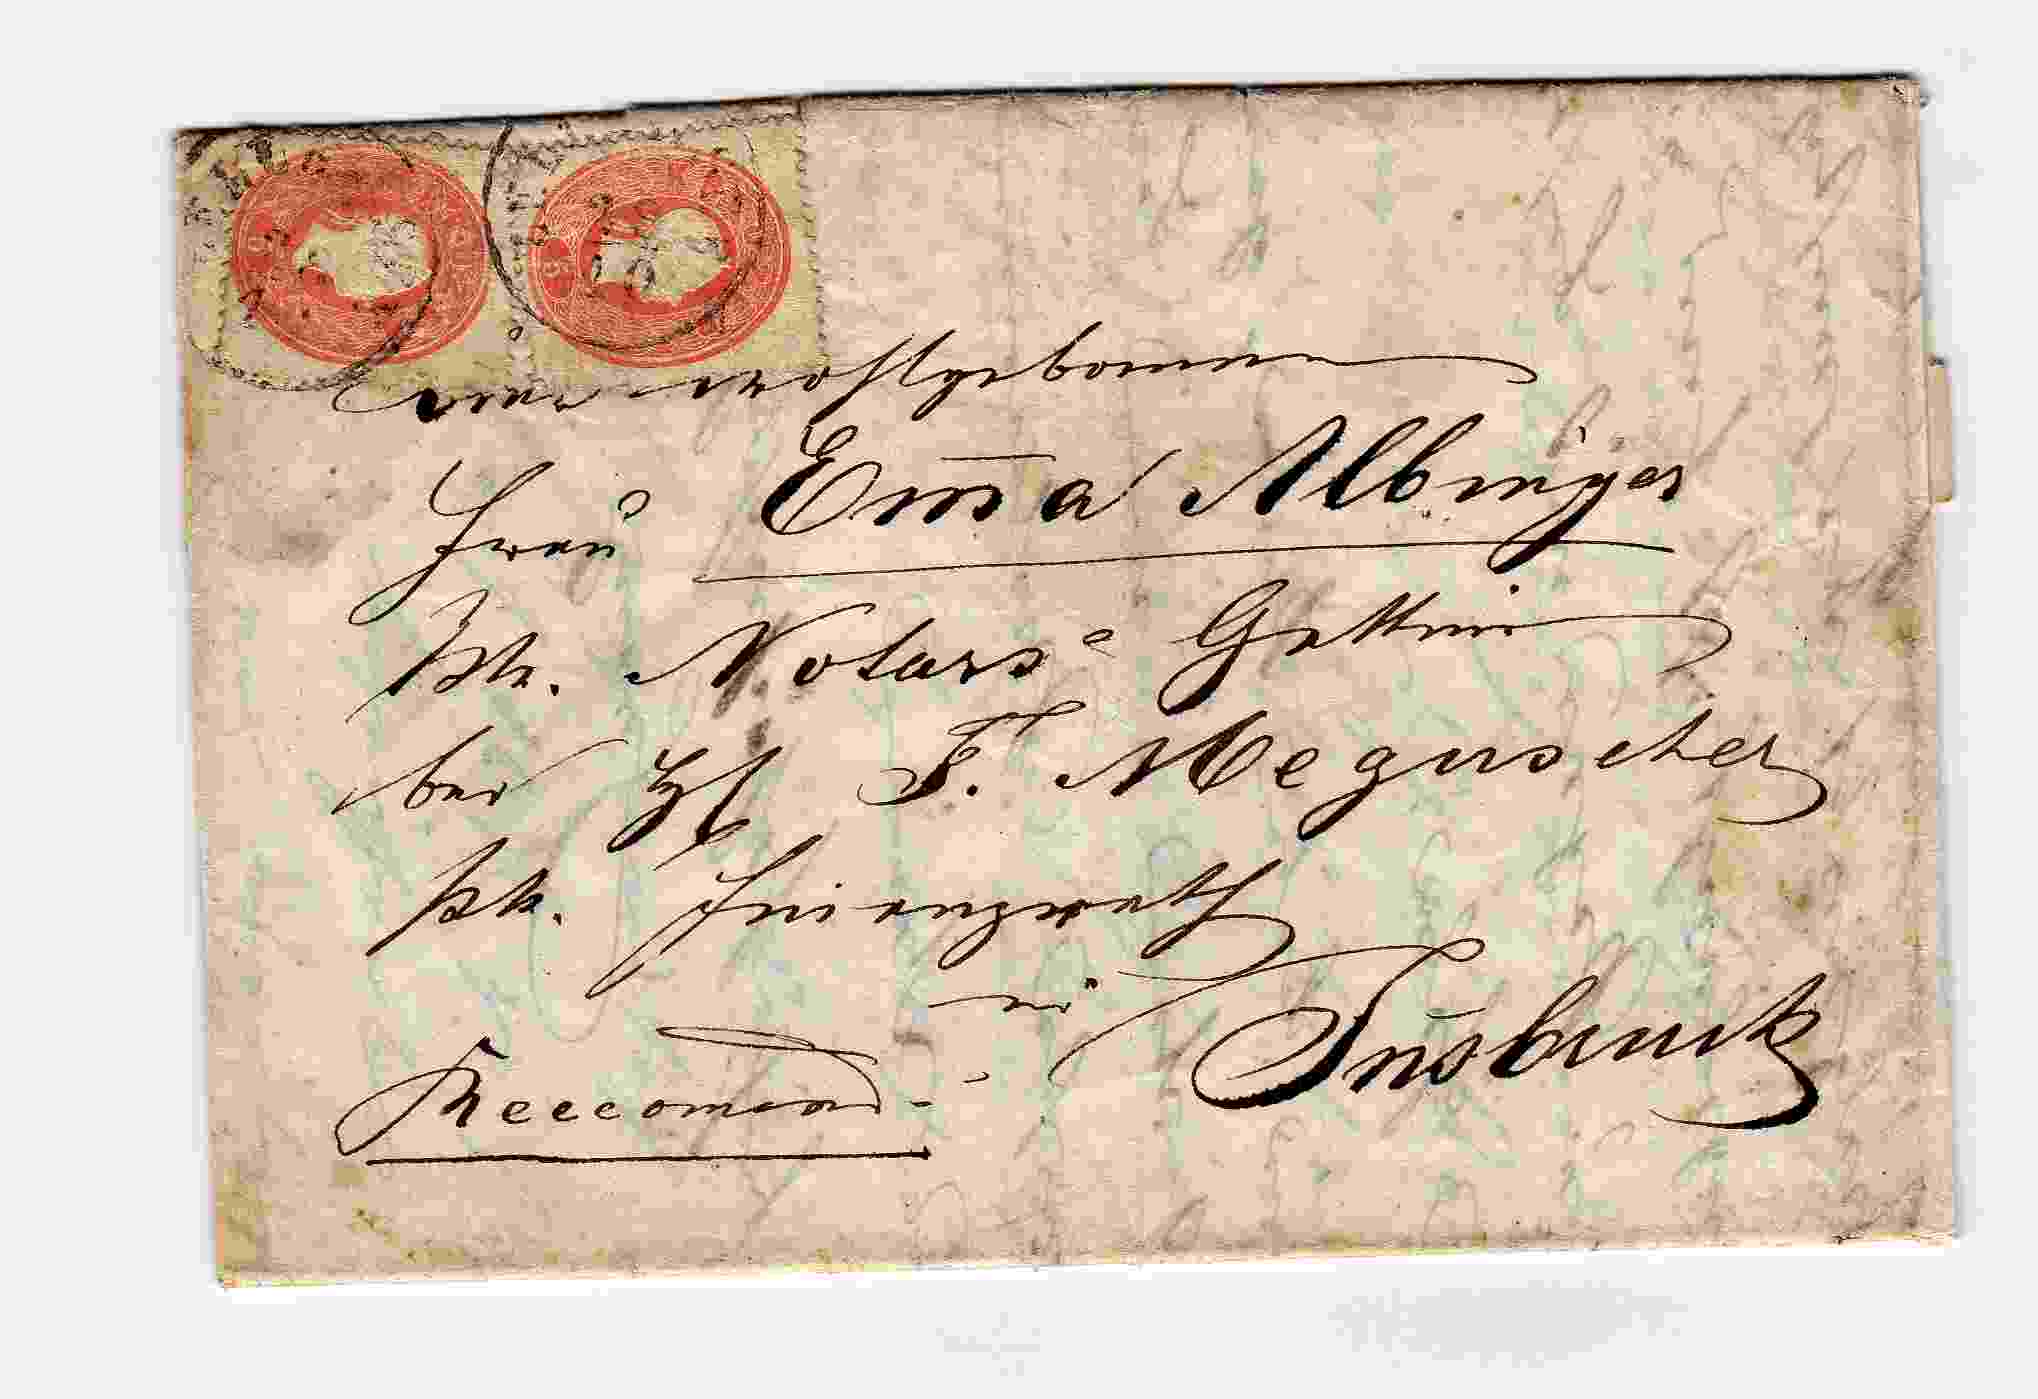 Der wohlgebornen
Frau Em̅a Albinger
kk. Notars Gattin
bei H F. Meguscher
kk. Finanzrath
in In̅sbruck
Reccomand